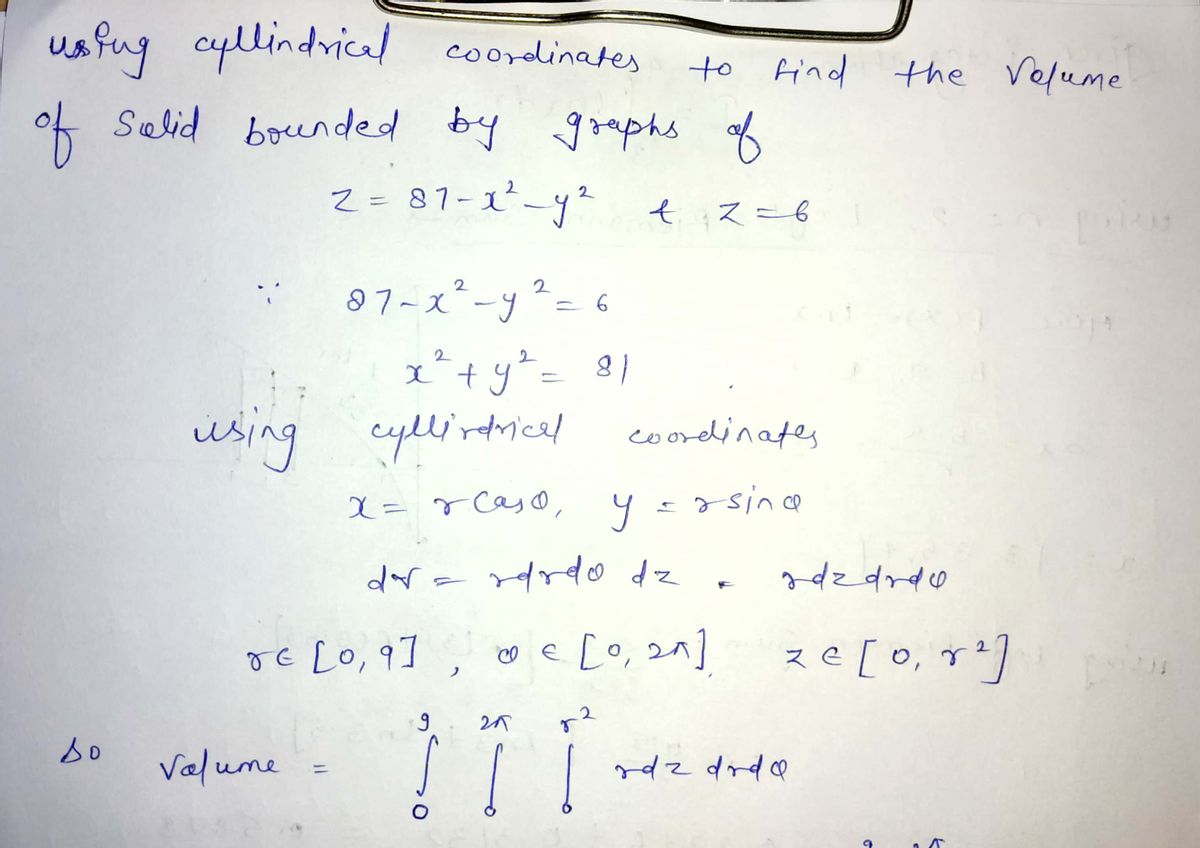 using cyllindrical coordinates to find the Volume
of Solid bounded by graphs of
z = 87-x²-y² & z=6
∵ 87-x²-y²=6
x²+y²= 81
using cyllindrical coordinates
x= rcosθ, y = rsinθ
dv = rdrdθ dz = rdzdrdθ
r∈ [0,9] , θ ∈ [0,2π], z∈ [0, r²]
so Volume = ∫₀⁹ ∫₀^2π ∫₀^r² rdz drdθ